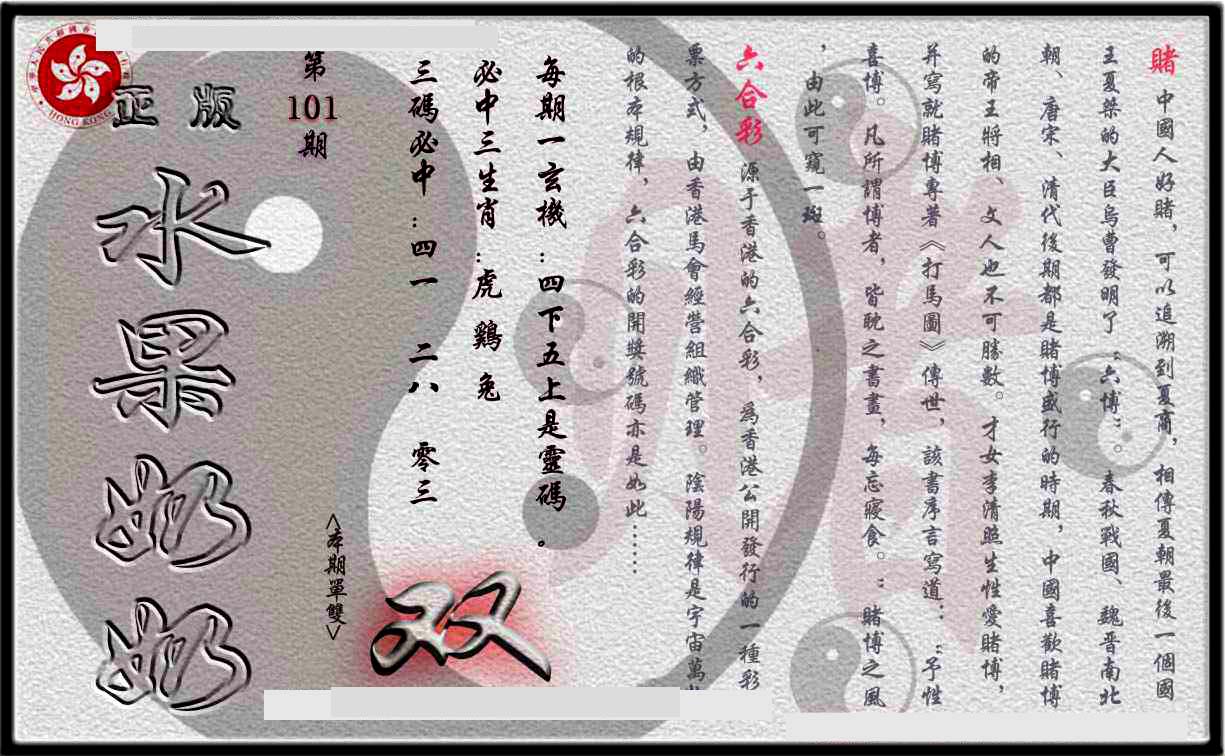 賭 中國人好賭，可以追溯到夏商，相傳夏朝最後一個國
王夏桀的大臣烏曹發明了“六博”。春秋戰國、魏晉南北
朝、唐宋、清代後期都是賭博盛行的時期，中國喜歡賭博
的帝王將相、文人也不可勝數。才女李清照生性愛賭博，
并寫就賭博專著《打馬圖》傳世，該書序言寫道：“予性
喜博。凡所謂博者，皆耽之晝書，每忘寢食。”賭博之風
，由此可窺一斑。
六合彩 源于香港的六合彩，爲香港公開發行的一種彩
票方式，由香港馬會經營組織管理。陰陽規律是宇宙萬
的根本規律，六合彩的開獎號碼亦是如此……
每期一玄機：四下五上是靈碼。
必中三生肖：虎 鷄 兔
三碼必中：四一 二八 零三
第
101
期
<本期單雙>
双
正版
水果奶奶
HONG KONG